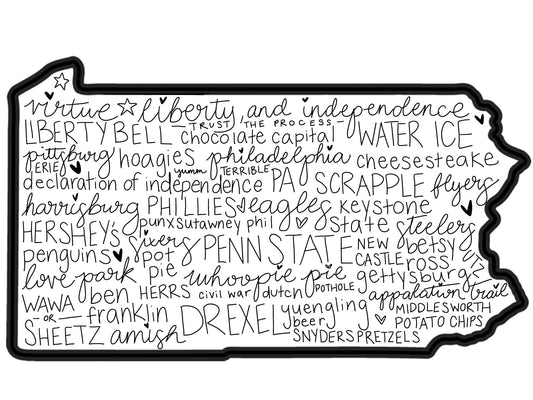 virtue liberty and independence
TRUST THE PROCESS
LIBERTY BELL chocolate capital WATER ICE
pittsburg hoagies philadelphia cheesesteake
ERIE yumm TERRIBLE
declaration of independence PA SCRAPPLE flyers
harrisburg PHILLIES eagles keystone
HERSHEY's punxsutawney phil state steelers
penguins sixers PENN STATE NEW betsy
pot CASTLE ross
love park pie whoopie pie gettysburg
WAWA ben HERRS civil war dutch POTHOLE appalation trail
OR franklin DREXEL yuengling MIDDLESWORTH
SHEETZ amish beer POTATO CHIPS
SNYDERS PRETZELS